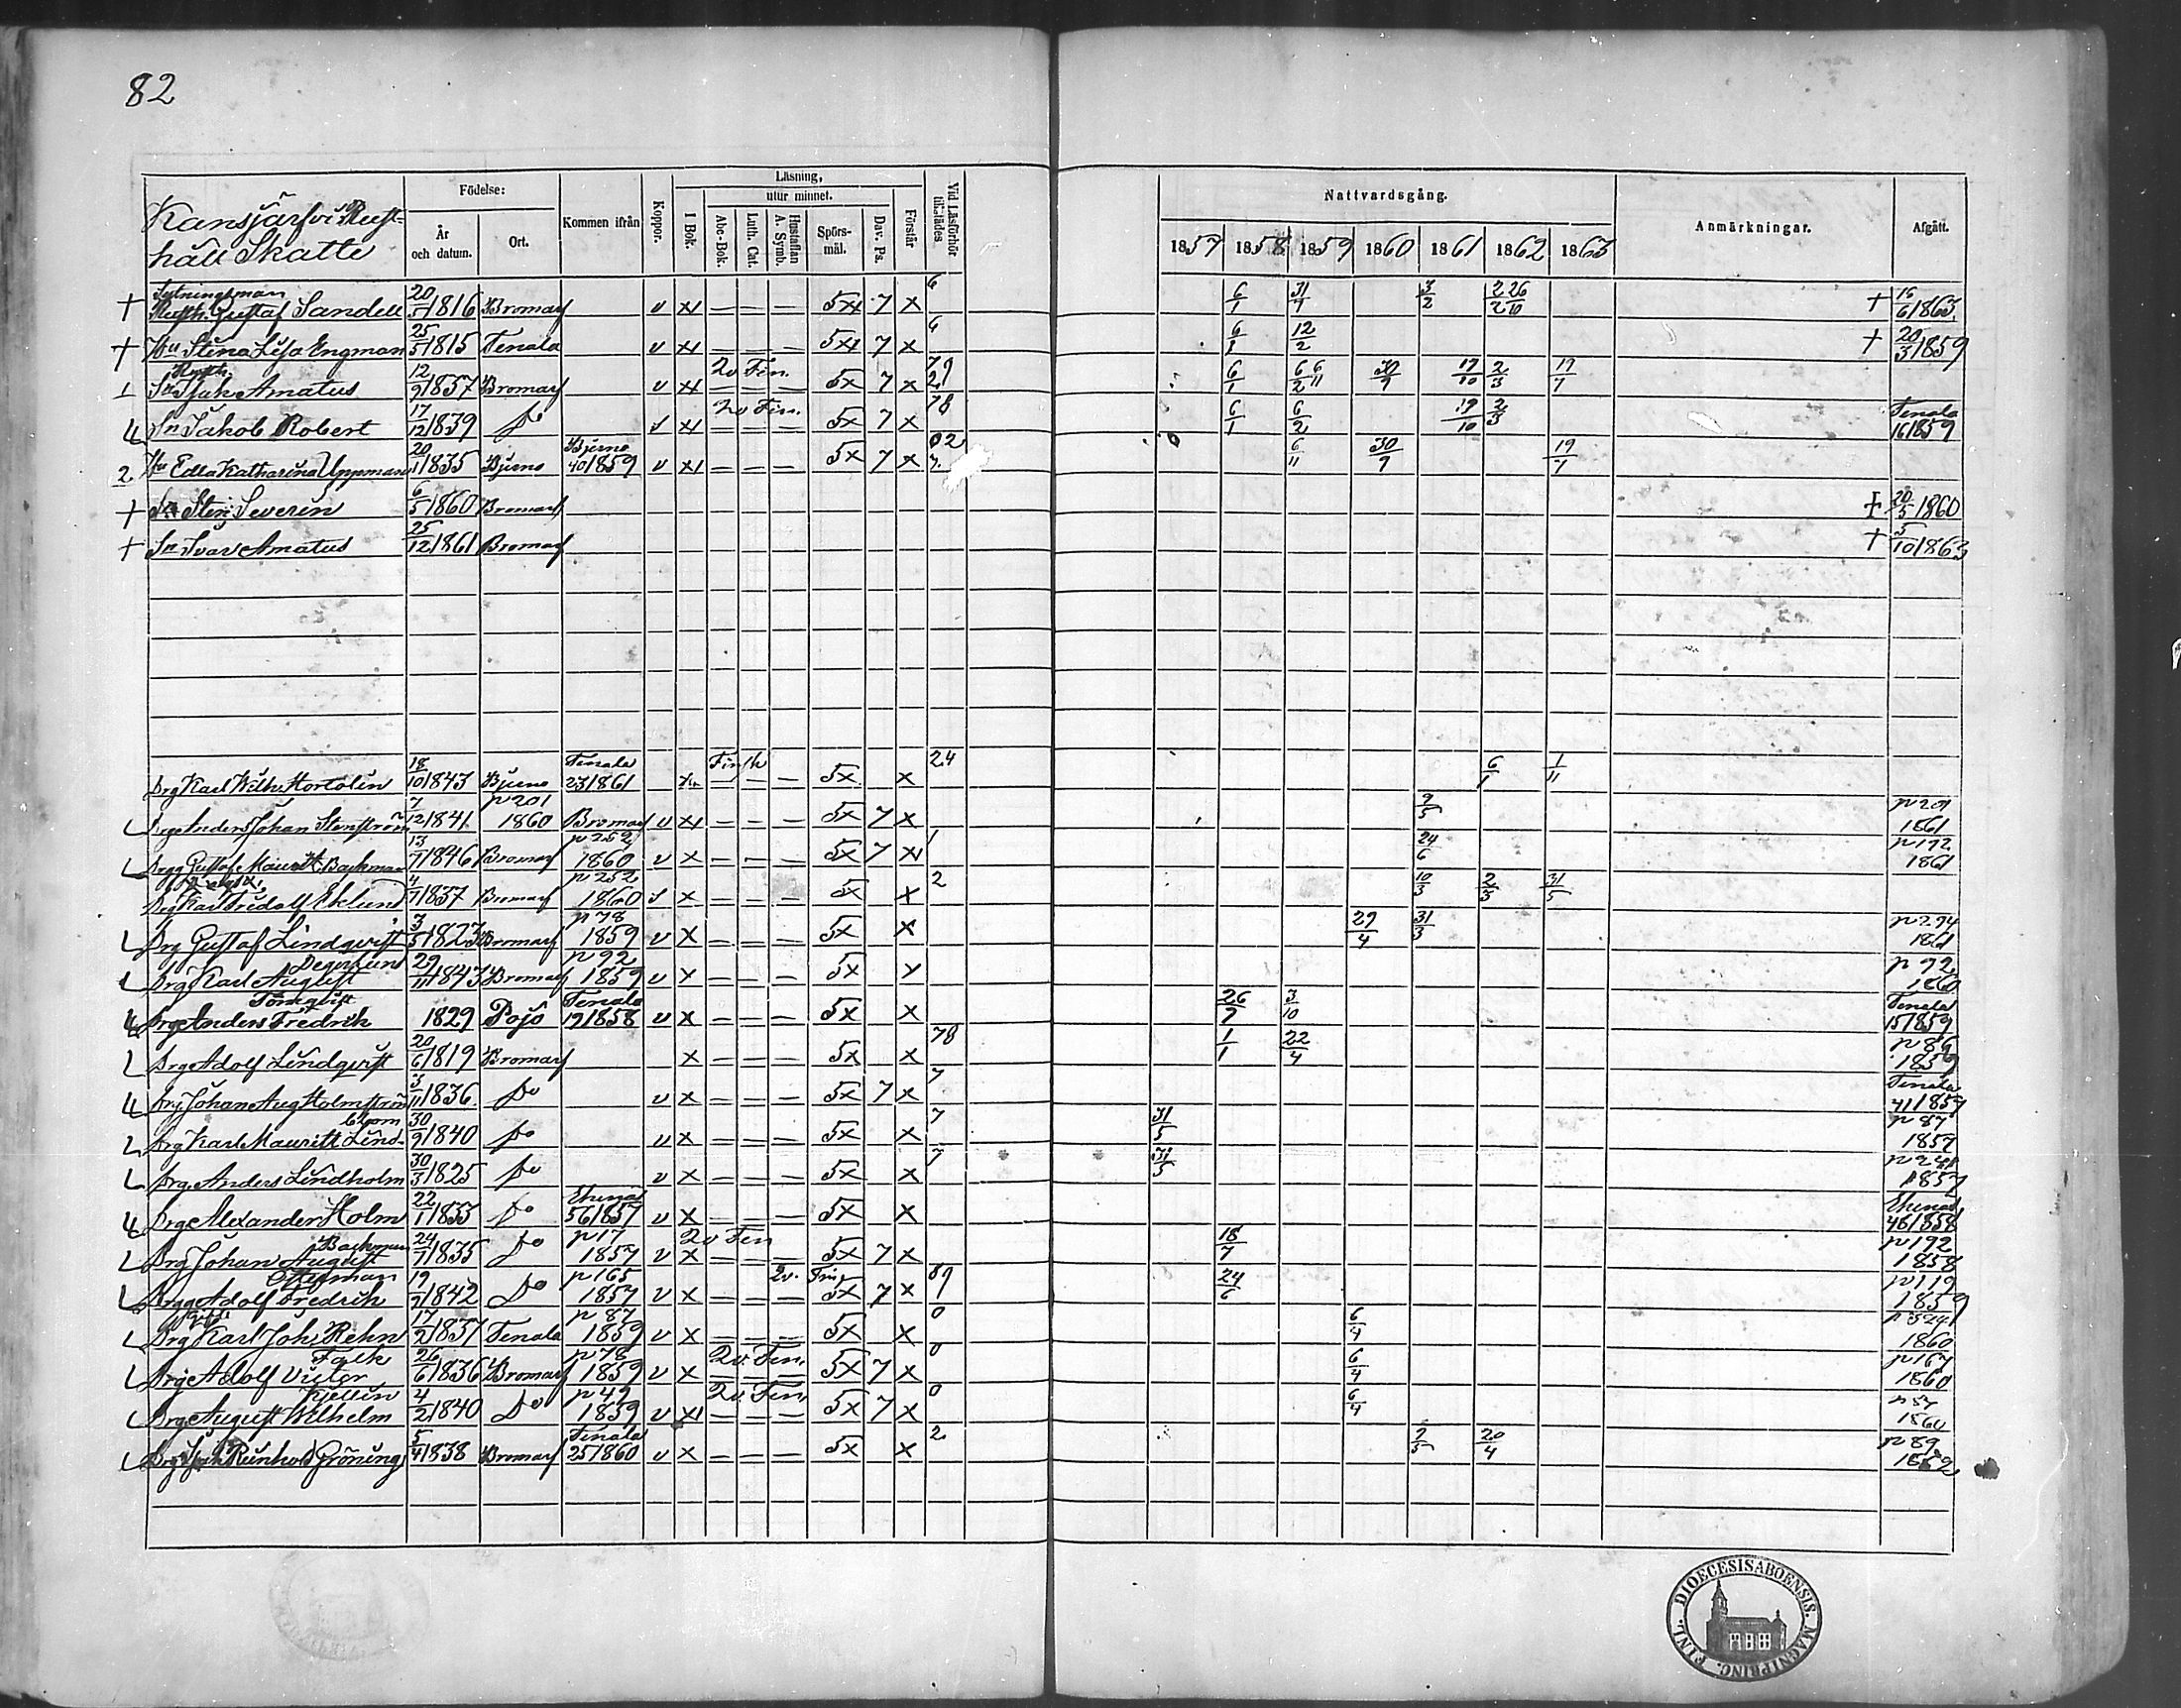 82
Kansjärfvi Rust-
håll Skatte
Födelse:
År och datum.
Ort.
Kommen ifrån
Koppor.
Läsning,
I Bok.
utur minnet.
Abc-Bok.
Luth. Cat.
Hustaflan A. Symb.
Spörs-mål.
Dav. Ps.
Förstår
Vid Läsförhör tillstädes
Nattvardsgång.
1857 1858 1859 1860 1861 1862 1863
Anmärkningar.
Afgått.
† Rusth. Gustaf Sandell 1816 Bromarf v 5x 7 x 6 6/1 3/2 † 16/6 1863
† Hu Stina Lisa Engman 25/5 1815 Tenala v 5x 7 x 6 6/1 12/2 † 20/3 1859
2v Fin.
Sn Isak Amatus 12/9 1837 Bromarf v 5x 7 x 6/1 6/2 6/11 17/10 2/3 19/7
2v Fin. 78
Sn Jakob Robert 17/12 1839 Do 5x 7 x 6/1 6/2 19/10 2/3 Tenala 16 1859
2 Hu Edla Katharina Uppman 20/1 1835 Bjerno Bjerno 40 1859 v 5x 7 x 6/11 30/9 19/7
† Sn Sten Severin 6/5 1860 Bromarf † 20/5 1860
† Sn Ivar Amatus 25/12 1861 Bromarf † 5/10 1863
Drg Karl Wilh. Hortolin 18/10 1843 Bjerno Tenala 23 1861 5x x 24 6/1 1/11
Drg Anders Johan Stenström 7/12 1841 p 201 1860 Bromarf v 5x 7 x 9/5 p 201 1861
Drgg Gustaf Mauritz Backman 13/7 1846 Bromarf p 252 1860 v x 5x 7 x 1 24/6 p 192 1861
Drg Karl Fridolf Eklund 4/7 1837 Bromarf p 252 1860 x 5x x 2 10/3 2/3 31/5
Drg Gustaf Lindqvist 3/5 1823 Bromarf p 78 1859 v x 5x x 29/4 31/3 p 294 1861
Degerlund
Drg Karl August 29/11 1843 Bromarf p 92 1859 v x 5x x p 92 1860
Törnqvist
Drg Anders Fredrik 1829 Pojo Tenala 19 1858 v x 5x x 26/7 3/10 Tenala 15 1859
Drg Adolf Lindqvist 20/6 1819 Bromarf x 5x x 78 1/1 22/4 p 86 1859
Drg Johan Aug Holmström 3/11 1836 Do v x 5x 7 x 7 Tenala 41 1857
blom
Drg Karl Mauritz Lind- 30/9 1840 Do v x 5x x 7 31/5 p 87 1857
Drg Anders Lindholm 30/3 1825 Do v x 5x x 7 31/5 1857
Drg Alexander Holm 22/1 1833 Do Ekenäs 56 1857 v x 5x x Ekenäs 46 1858
Backman
Drg Johan August 24/7 1835 Do p 17 1857 v x 2v Fin 5x 7 x 18/7 p 192 1858
Drgg Adolf Fredrik 19/9 1842 Do p 165 1857 v x 2v. Fin 5x 7 x 89 24/6 p 119 1859
Drg Karl Joh. Rehn 17/2 1837 Tenala p 87 1859 v x 5x x 0 6/4 1860
Falk
Drg Adolf Victor 26/6 1836 Bromarf p 78 1859 v x 2v. Fin. 5x 7 x 0 6/4 p 167 1860
Kjellin
Drg August Wilhelm 4/2 1840 Do p 49 1859 v 2v. Fin. 5x 7 x 0 6/4 1860
Drg Reinhold Gröning 5/4 1838 Bromarf Tenala 25 1860 v x 5x x 2 2/5 20/4 p 89
FINL. DIOECESIS ABOENSIS. MAGNI PRINC.